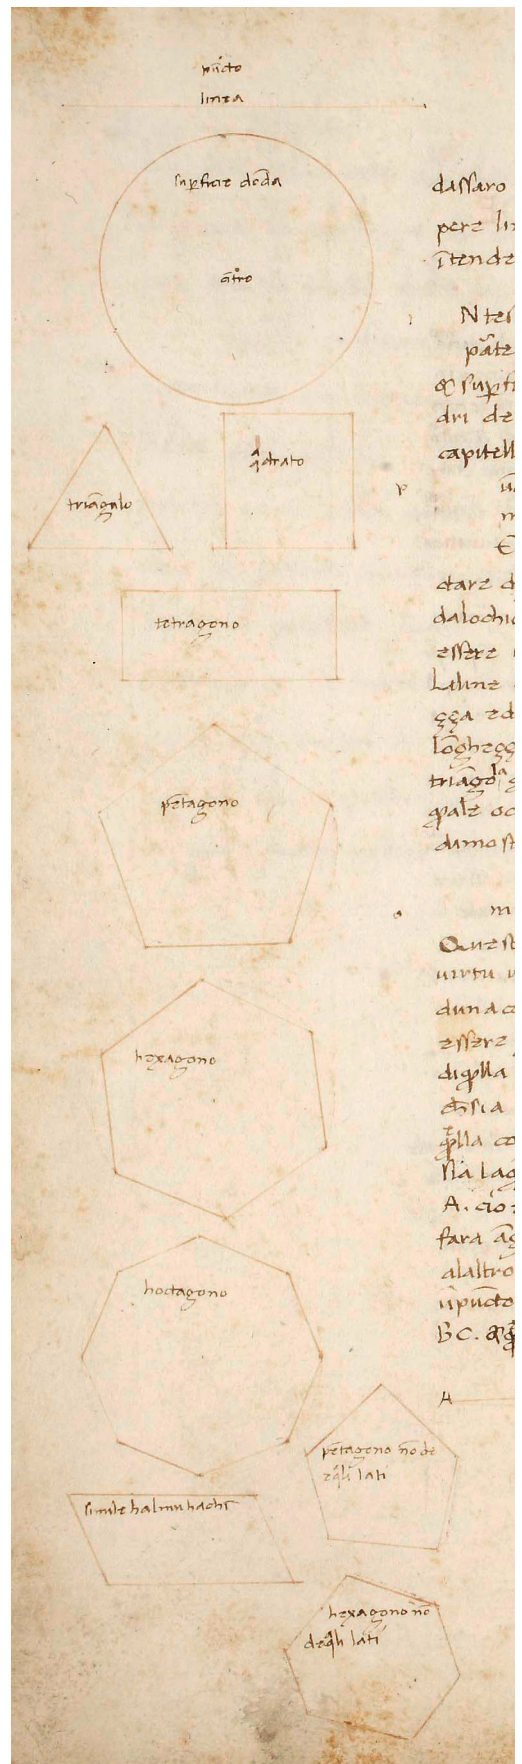 pūcto
linea
supficie tōda
cētro
triāgalo
qdrato
tetragono
pētagono
hexagono
hoctagono
pētagono nō de
eqli lati
simile halmuhachī
hexagono nō
deqli lati
dassaro
pere lin
ītende
N tes
pāte
& supfi
dri de
capitell
dare d
dalochio
essere
Laline
çça ed
lōgheçç
triāgola
qale oc
dimost
m
Quest
uirtu u
dunaco
essere
diqlla
chsia
qlla co
sia lag
A. cio
fara āg
alaltro
ūpūcto
BC.
A